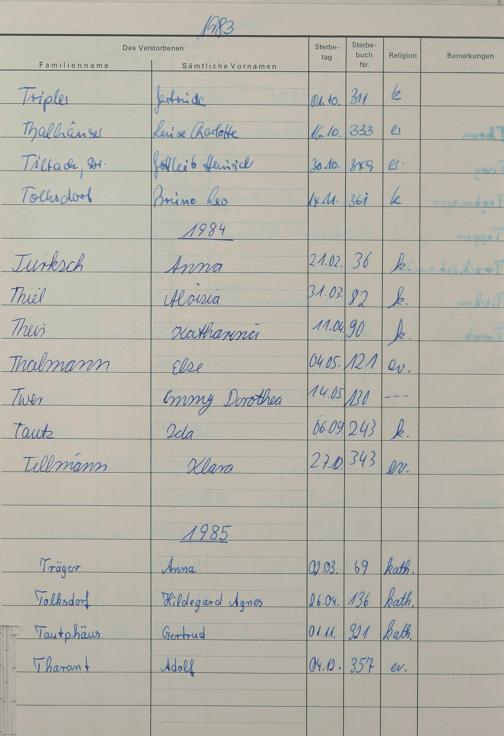 1983
Des Verstorbenen Sterbe- Sterbe- Religion Bemerkungen
Familienname Sämtliche Vornamen tag buch Nr.
Tripler Gertrude 01.10. 311 k
Thalhäuser Luise Charlotte 16.10. 333 ev
Tiltack, Dr. Gottlieb Heinrich 30.10. 349 ev.
Tolksdorf Bruno Leo 14.11. 361 k
1984
Turksch Anna 21.02. 36 k.
Thiel Aloisia 31.03. 82 k.
Theis Katharina 11.04. 90 k.
Thalmann Else 04.05. 121 ev.
Twer Emmy Dorothea 14.05 130 ---
Tautz Ida 06.09 243 k.
Tillmann Klara 343 ev.
1985
Träger Anna 02.03. 69 kath.
Tolksdorf Hildegard Agnes 26.04. 136 kath.
Tautphäus Gertrud 01.11. 321 kath.
Tharant Adolf 04.12. 357 ev.